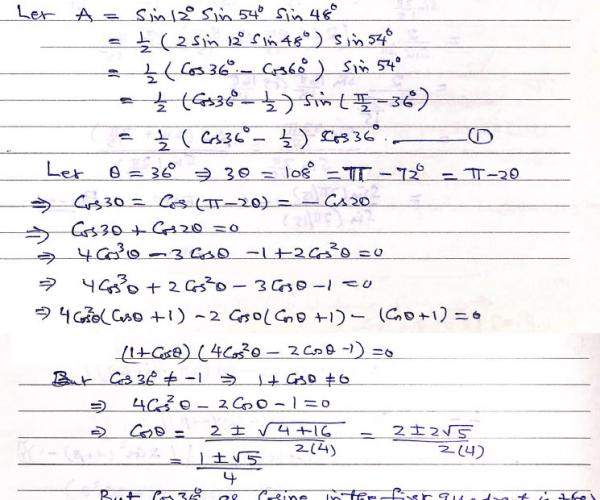 Let A = Sin12° Sin54° Sin48°
= 1/2 (2 Sin12° Sin48°) Sin54°
= 1/2 (Cos36° - Cos60°) Sin54°
= 1/2 (Cos36° - 1/2) Sin(π/2 - 36°)
= 1/2 (Cos36° - 1/2) Cos36° ——— ①
Let θ = 36° ⇒ 3θ = 108° = π - 72° = π - 2θ
⇒ Cos3θ = Cos(π - 2θ) = - Cos2θ
⇒ Cos3θ + Cos2θ = 0
⇒ 4Cos³θ - 3Cosθ - 1 + 2Cos²θ = 0
⇒ 4Cos³θ + 2Cos²θ - 3Cosθ - 1 = 0
⇒ 4Cos²θ(Cosθ + 1) - 2Cosθ(Cosθ + 1) - (Cosθ + 1) = 0
(1 + Cosθ) (4Cos²θ - 2Cosθ - 1) = 0
But Cos36° ≠ -1 ⇒ 1 + Cosθ ≠ 0
⇒ 4Cos²θ - 2Cosθ - 1 = 0
⇒ Cosθ = (2 ± √(4+16))/2(4) = (2 ± 2√5)/2(4)
= (1 ± √5)/4
But Cos36° as Cosine in the first